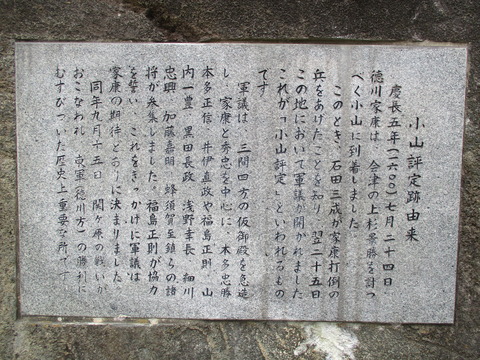 小山評定跡由来
慶長五年(一六〇〇)七月二十四日
徳川家康は 会津の上杉景勝を討つ
べく小山に到着しました
このとき、石田三成が家康打倒の
兵をあげたことを知り 翌二十五日
この地において軍議が開かれました
これが「小山評定」といわれるもの
です
軍議は 三間四方の仮御殿を急造
し、家康と秀忠を中心に 本多忠勝
本多正信・井伊直政や福島正則 山
内一豊・黒田長政 浅野幸長 細川
忠興・加藤嘉明・蜂須賀至鎮らの諸
将が参集しました。福島正則が協力
を誓い これをきっかけに軍議は
家康の期待どおりに決まりました。
同年九月十五日 関ヶ原の戦いが
おこなわれ 東軍(徳川方)の勝利に
むすびついた歴史上重要な所です